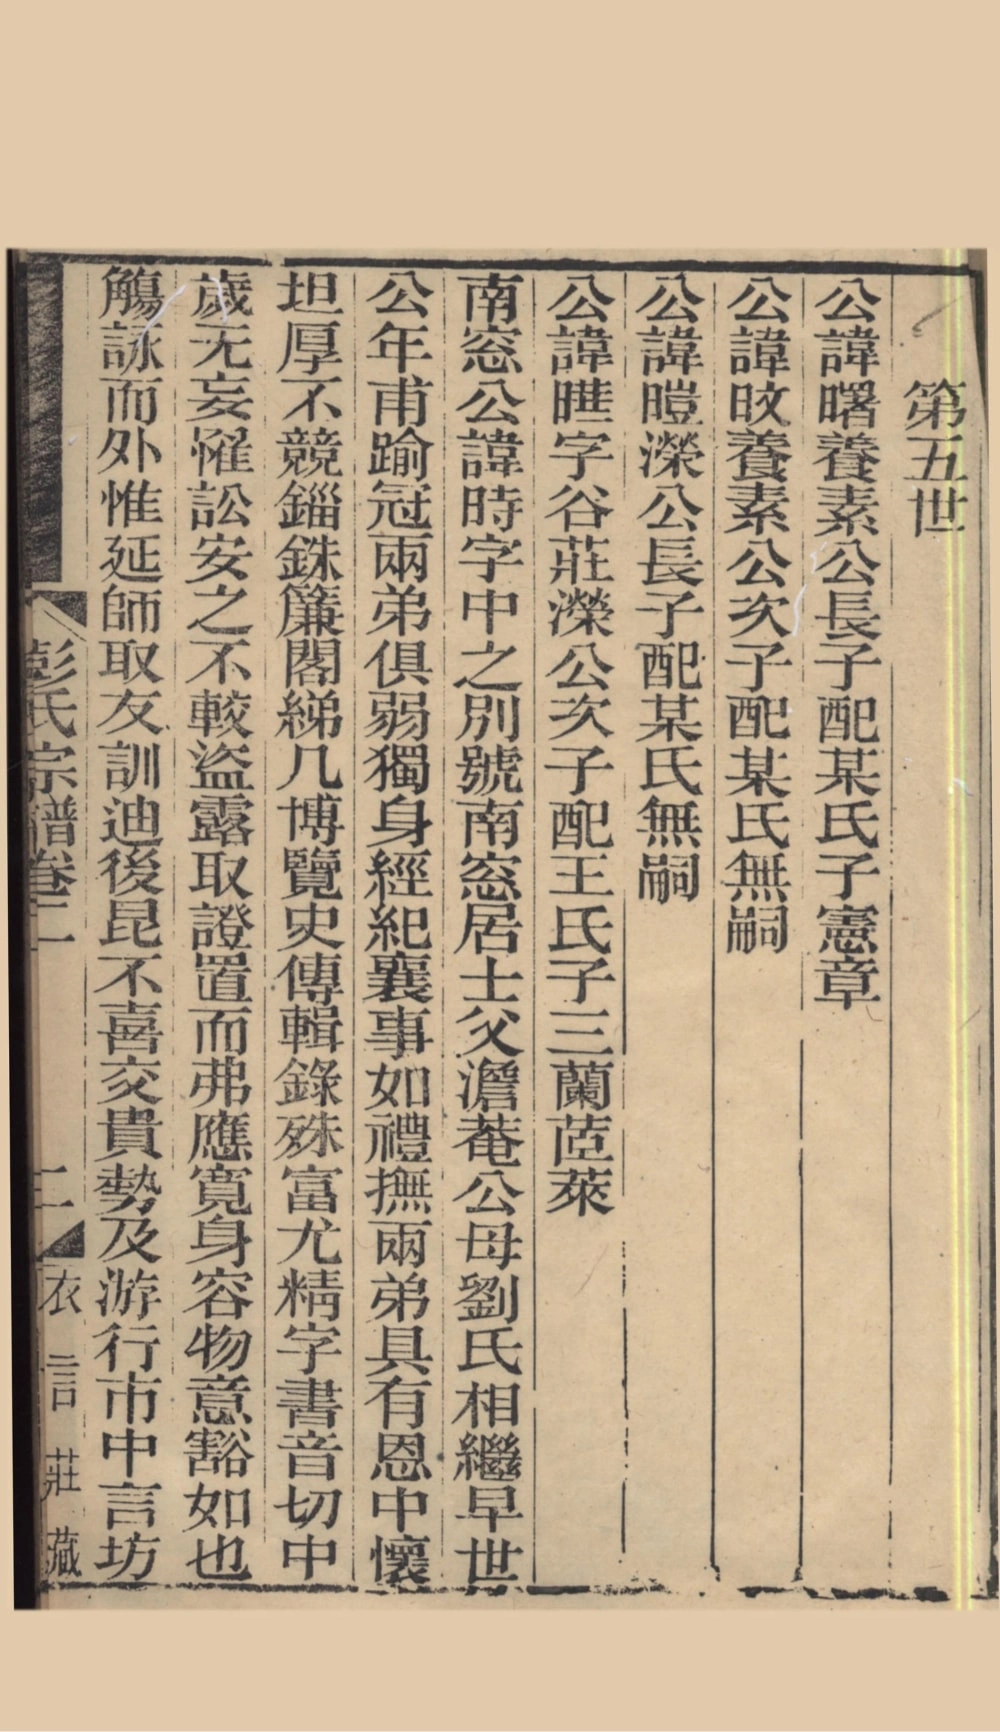 第五世
公諱曙養素公長子配某氏子憲章
公諱旼養素公次子配某氏無嗣
公諱暟濚公長子配某氏無嗣
公諱曗字谷莊濚公次子配王氏子三蘭茝萊
南窓公諱時字中之別號南窓居士父澹菴公母劉氏相繼早世
公年甫踰冠兩弟俱弱獨身經紀襄事如禮撫兩弟具有恩中懷
坦厚不競錙銖簾閣綈几博覽史傳輯錄殊富尤精字書音切中
歲无妄罹訟安之不較盜露取證置而弗應寛身容物意豁如也
觴詠而外惟延師取友訓迪後昆不喜交貴勢及游行市中言坊
彭氏宗譜卷二
二
衣言莊藏